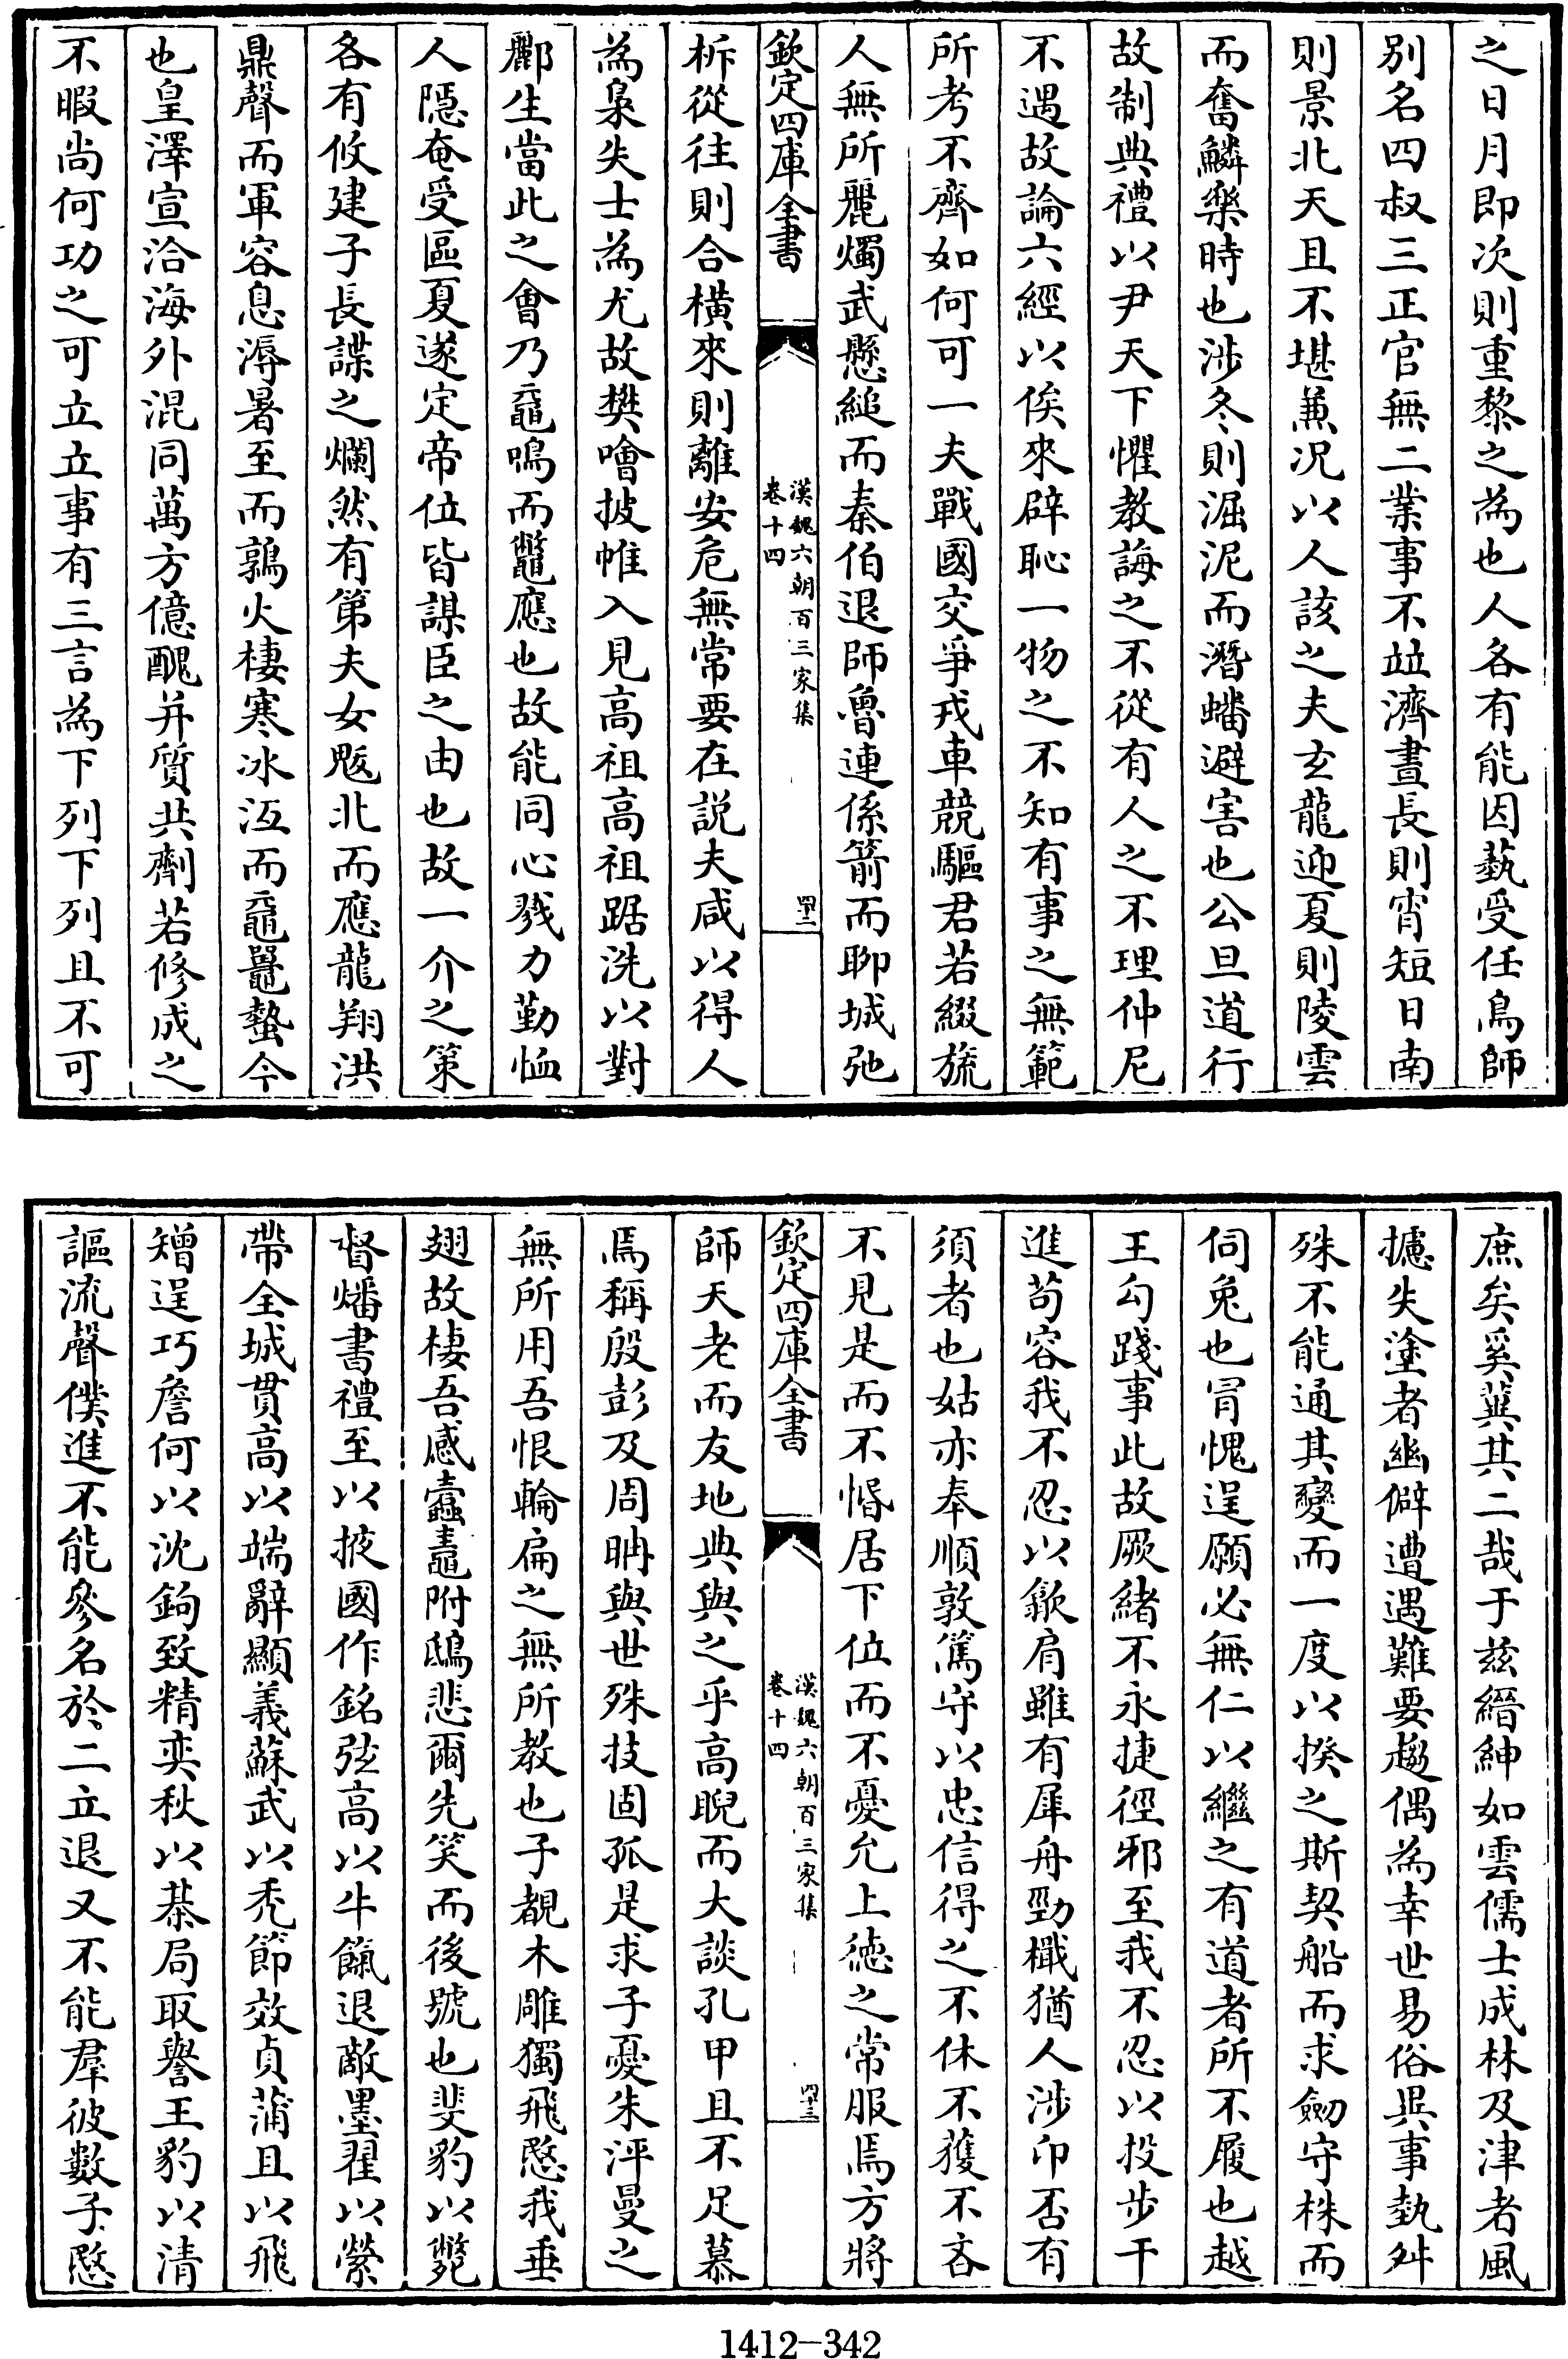 之日月即次則重黎之為也人各有能因藝受任鳥師
別名四叔三正官無二業事不竝濟晝長則宵短日南
則景北天且不堪兼况以人該之夫玄龍迎夏則陵雲
而奮鱗樂時也涉冬則淈泥而潛蟠避害也公旦道行
故制典禮以尹天下懼教誨之不從有人之不理仲尼
不遇故論六經以俟來辟恥一物之不知有事之無範
所考不齊如何可一夫戰國交爭戎車競驅君若綴旒
人無所麗燭武懸縋而秦伯退師魯連係箭而聊城弛
欽定四庫全書
漢魏六朝百三家集
卷十四
四十二
柝從往則合橫來則離安危無常要在説夫咸以得人
為梟失士為尤故樊噲披帷入見高祖高祖踞洗以對
酈生當此之會乃黿鳴而鼈應也故能同心戮力勤恤
人隱奄受區夏遂定帝位皆謀臣之由也故一介之策
各有攸建子長諜之爛然有第夫女魃北而應龍翔洪
鼎聲而軍容息溽暑至而鶉火棲寒冰沍而黿鼉蟄今
也皇澤宣洽海外混同萬方億醜并質共劑若修成之
不暇尚何功之可立立事有三言為下列下列且不可
庶矣奚冀其二哉于兹縉紳如雲儒士成林及津者風
攄失塗者幽僻遭遇難要趨偶為幸世易俗異事埶舛
殊不能通其變而一度以揆之斯契船而求劒守株而
伺兔也冐愧逞願必無仁以繼之有道者所不履也越
王勾踐事此故厥緒不永捷徑邪至我不忍以投步干
進苟容我不忍以歙肩雖有犀舟勁檝猶人涉卬否有
須者也姑亦奉順敦篤守以忠信得之不休不獲不吝
不見是而不惛居下位而不憂允上德之常服焉方將
欽定四庫全書
漢魏六朝百三家集
卷十四
四十三
師天老而友地典與之乎高睨而大談孔甲且不足慕
焉稱殷彭及周聃與世殊技固孤是求子憂朱泙曼之
無所用吾恨輪扁之無所教也子覩木雕獨飛愍我垂
翅故棲吾感鼃䵷附鴟悲爾先笑而後號也斐豹以斃
督燔書禮至以掖國作銘弦高以牛餼退敵墨翟以縈
帶全城貫高以端辭顯義蘇武以禿節效貞蒲且以飛
矰逞巧詹何以沈鉤致精奕秋以棊局取譽王豹以清
謳流聲僕進不能參名於二立退又不能羣彼數子愍
1412-342